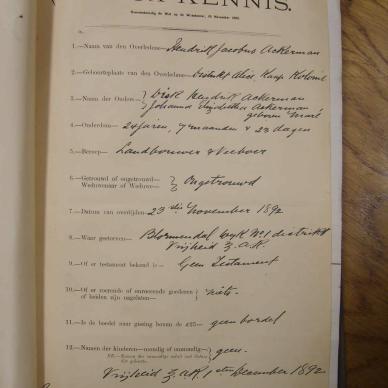 KENNIS.
1.—Naam van den Overledene— Hendrik Jacobus Ackerman
2.—Geboorteplaats van den Overledene— Kaap Kolonie
3.—Namen der Ouders— Dirk Hendrik Ackerman
Johanna Ackerman
geboren
4.—Ouderdom— 24 jaren, 7 maanden & 23 dagen
5.—Beroep— Landbouwer & Veeboer
6.—Getrouwd of ongetrouwd—
Weduwnaar of Weduwe— Ongetrouwd
7.—Datum van overlijden— 23 sten November 1892
8.—Waar gestorven— Bloemendal Wyk No 1 distrikt
Vrijheid Z.A.R.
9.—Of er testament bekend is— Geen Testament
10.—Of er roerende of onroerende goederen
of beiden zijn nagelaten— niets.
11.—Is de boedel naar gissing boven de £25— geen boedel
12.—Namen der kinderen—mondig of onmondig— geen.
Vrijheid Z.A.R. 1sten December 1892